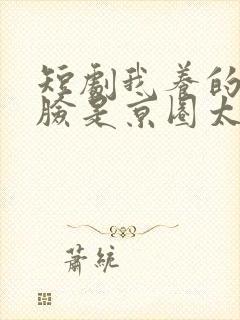 短劇我養的
臉是京圈太
蕭統